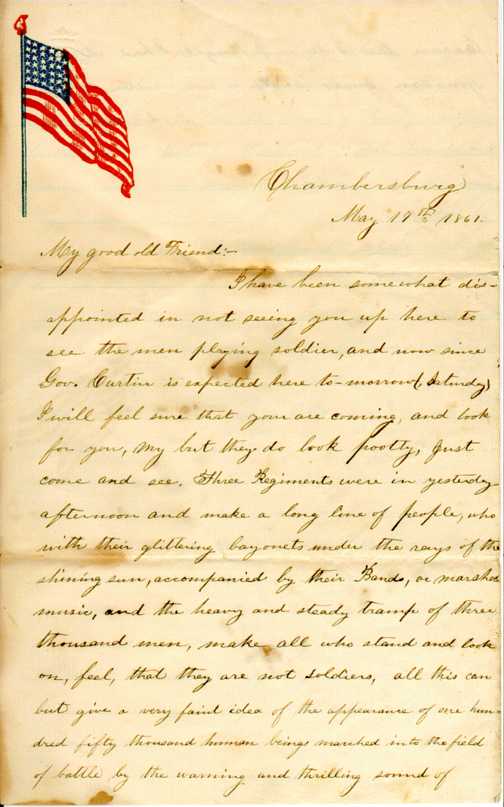 Chambersburg
May 17th 1861.
My good old Friend:-
I have been somewhat dis-
appointed in not seeing you up here to
see the men playing soldier, and now since
Gov. Curtin is expected here to-morrow (Saturday)
I will feel sure that you are coming, and look
for you, My but they do look pootty, Just
come and see. Three Regiments were in yesterday
afternoon and make a long line of people, who
with their glittering bayonets under the rays of the
shining sun, accompanied by their Bands, or marshal
music, and the heavy and steady tramp of three
thousand men, make all who stand and look
on, feel, that they are not soldiers, all this can
but give a very faint idea of the appearance of one hun-
dred fifty thousand human beings marched into the field
of battle by the warning and thrilling sound of